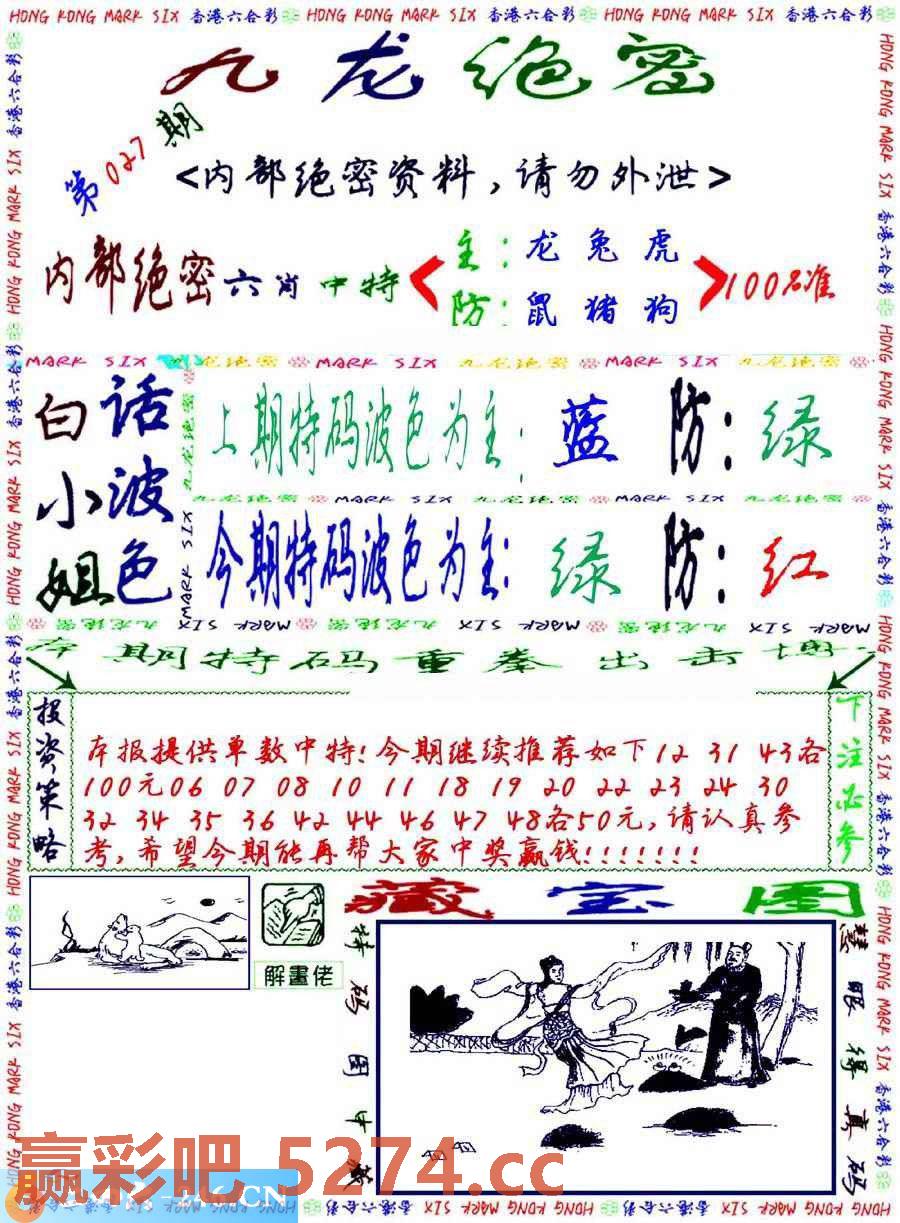 HONG KONG MARK SIX 香港六合彩 HONG KONG MARK SIX 香港六合彩 HONG KONG MARK SIX 香港六合彩
九龙绝密
第027期
<内部绝密资料,请勿外泄>
内部绝密六肖中特
主:龙兔虎
防:鼠猪狗
100%准
MARK SIX 九龙绝密 MARK SIX 九龙绝密 MARK SIX 九龙绝密
白话
小波
姐色
上期特码波色为主:蓝 防:绿
九龙绝密 MARK SIX 九龙绝密 MARK SIX 九龙绝密
今期特码波色为主:绿 防:红
MARK SIX 九龙绝密 MARK SIX 九龙绝密 MARK SIX 九龙绝密
本期特码重拳出击
投资策略
本报提供单数中特!今期继续推荐如下12 31 43各
100元06 07 08 10 11 18 19 20 22 23 24 30
32 34 35 36 42 44 46 47 48各50元,请认真参
考,希望今期能再帮大家中奖赢钱!!!!!!!
下注必参
解畫佬
藏宝图
特码图中藏
慧眼得真码
赢彩吧 5274.cc